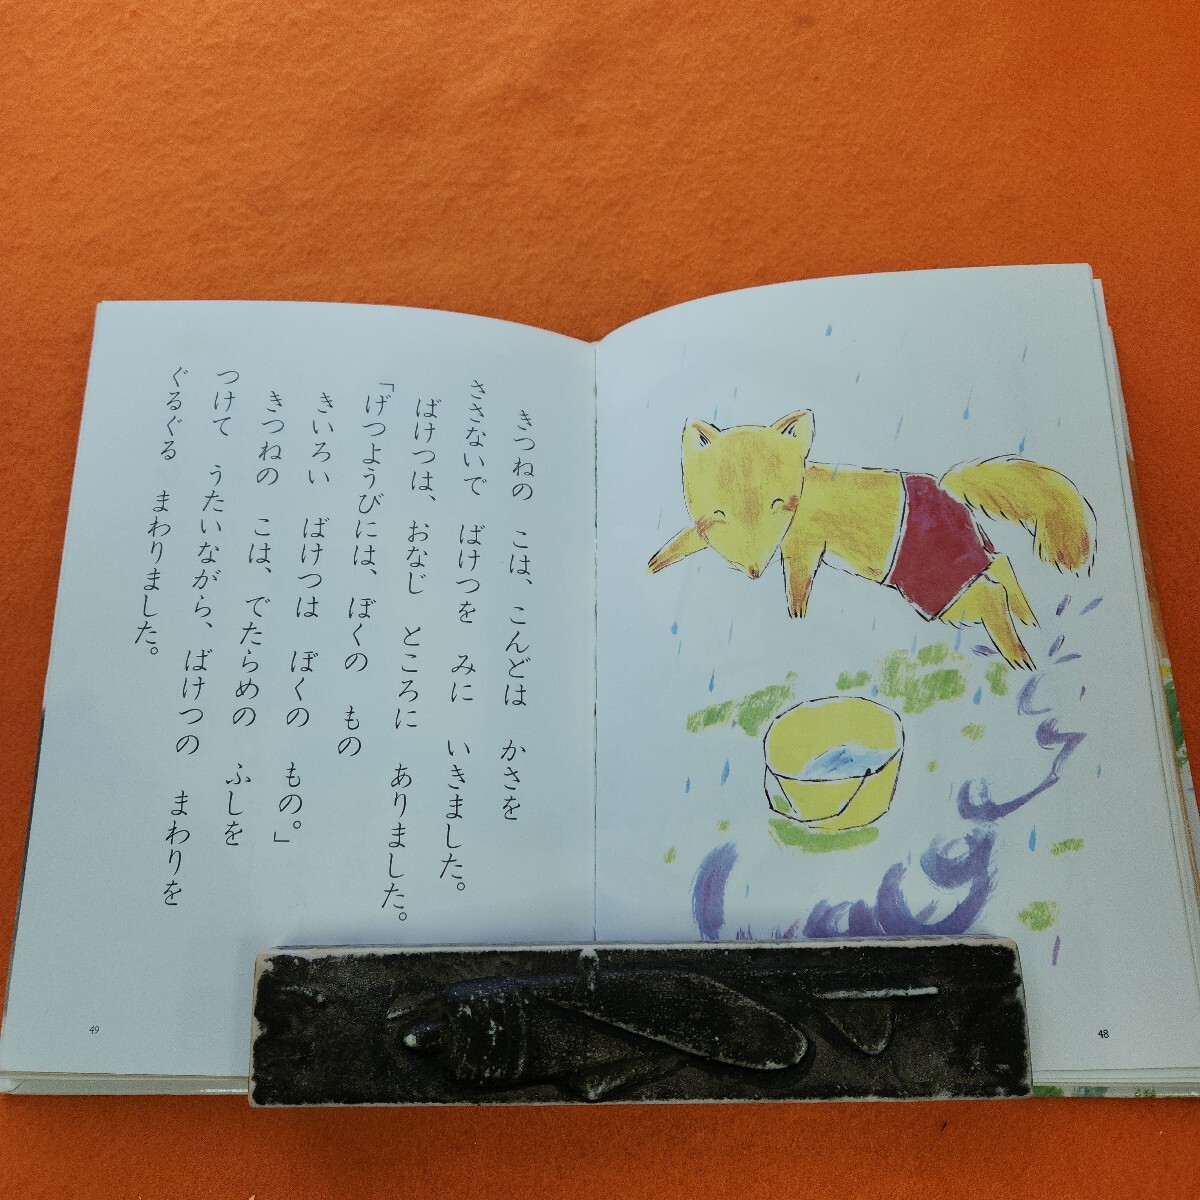 きつねの　こは、こんどは　かさを
ささないで　ばけつを　みに　いきました。
ばけつは、おなじ　ところに　ありました。
「げつようびには、ぼくの　もの
きいろい　ばけつは　ぼくの　もの。」
きつねの　こは、でたらめの　ふしを
つけて　うたいながら、ばけつの　まわりを
ぐるぐる　まわりました。
49
48